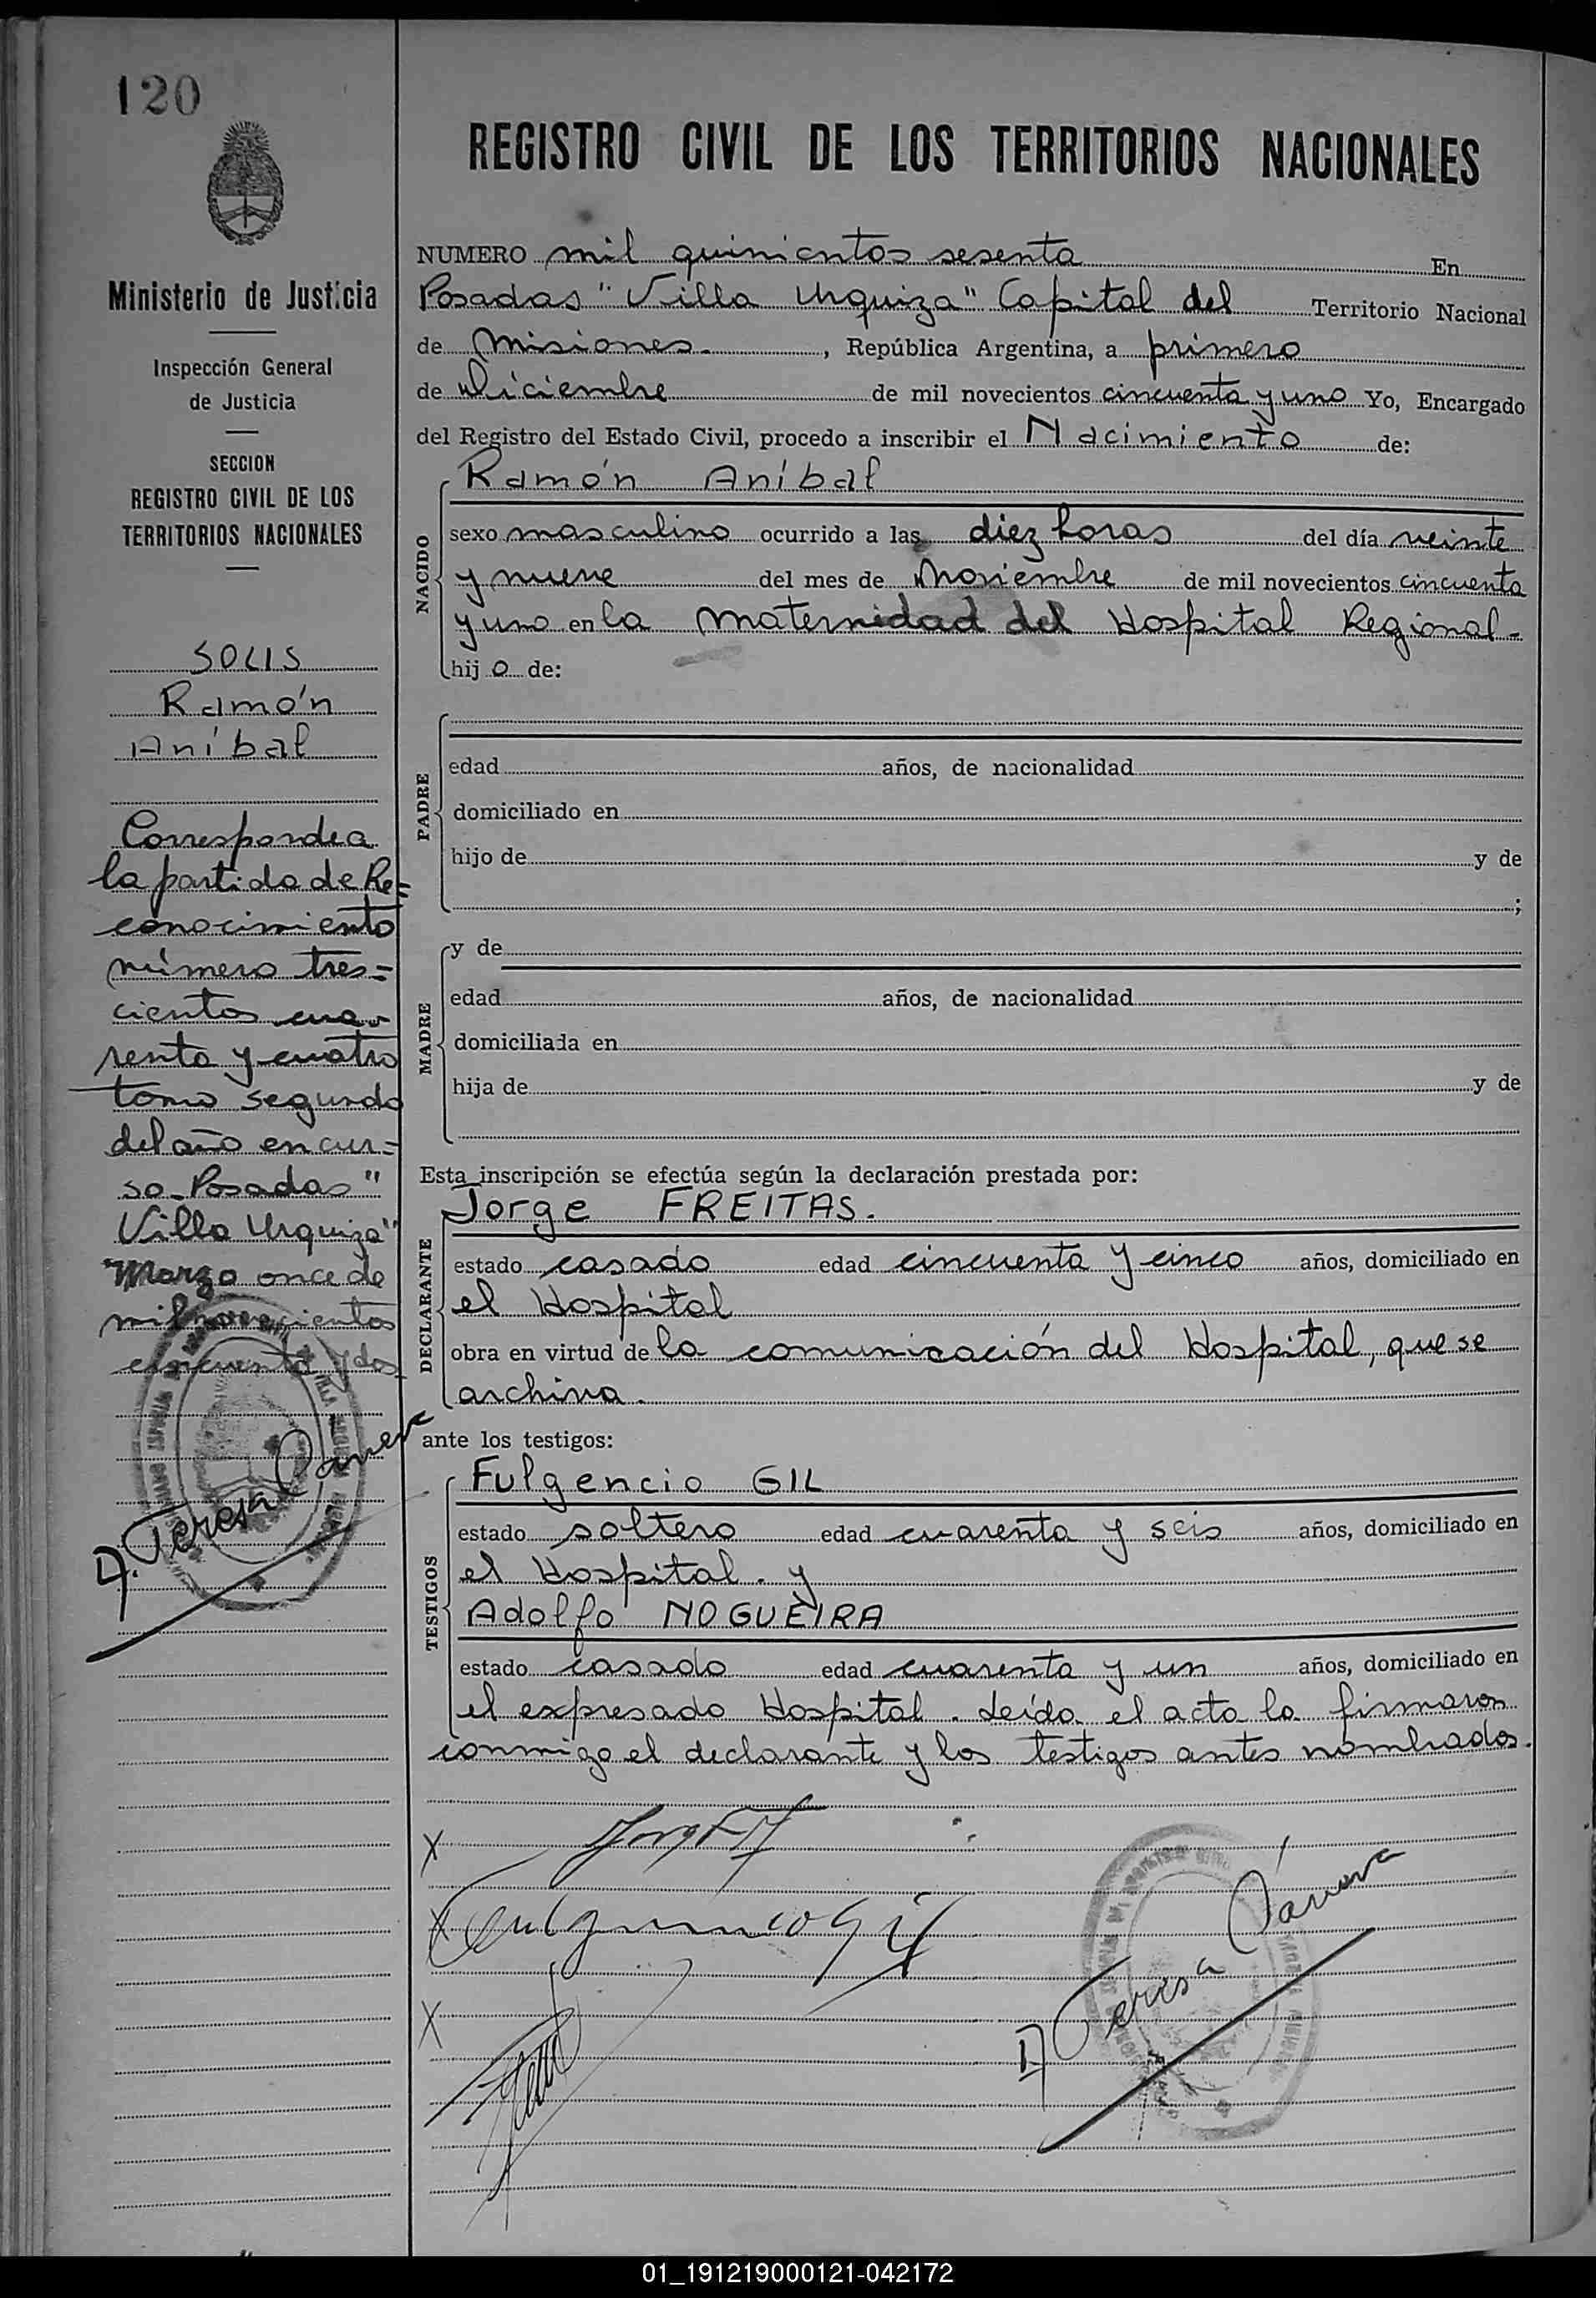 120
Ministerio de Justicia
Inspección General
de Justicia
SECCION
REGISTRO CIVIL DE LOS
TERRITORIOS NACIONALES
SOLIS
Ramón
Aníbal
Corresponde a
la partida de Re=
conocimiento
número tres=
cientos cua=
renta y cuatro
tomo segundo
del año en cur=
so. Posadas "
Villa Urquiza"
Marzo once de
mil novecientos
cincuenta y dos
D. Teresa
REGISTRO CIVIL DE LOS TERRITORIOS NACIONALES
NUMERO mil quinientos sesenta En
Posadas "Villa Urquiza" Capital del Territorio Nacional
de Misiones. , República Argentina, a primero
de Diciembre de mil novecientos cincuenta y uno Yo, Encargado
del Registro del Estado Civil, procedo a inscribir el Nacimiento de:
NACIDO
Ramón Aníbal
sexo masculino ocurrido a las diez horas del día veinte
y nueve del mes de Noviembre de mil novecientos cincuenta
y uno en la Maternidad del Hospital Regional.
hij o de:
PADRE
edad años, de nacionalidad
domiciliado en
hijo de y de
;
MADRE
y de
edad años, de nacionalidad
domiciliada en
hija de y de
Esta inscripción se efectúa según la declaración prestada por:
DECLARANTE
Jorge FREITAS.
estado casado edad cincuenta y cinco años, domiciliado en
el Hospital
obra en virtud de la comunicación del Hospital, que se
archiva.
ante los testigos:
TESTIGOS
Fulgencio GIL
estado soltero edad cuarenta y seis años, domiciliado en
el Hospital. y
Adolfo NOGUEIRA
estado casado edad cuarenta y un años, domiciliado en
el expresado Hospital. Leída el acta la firmaron
conmigo el declarante y los testigos antes nombrados.
X
X Fulgencio Gil
X
D. Teresa
01_191219000121-042172